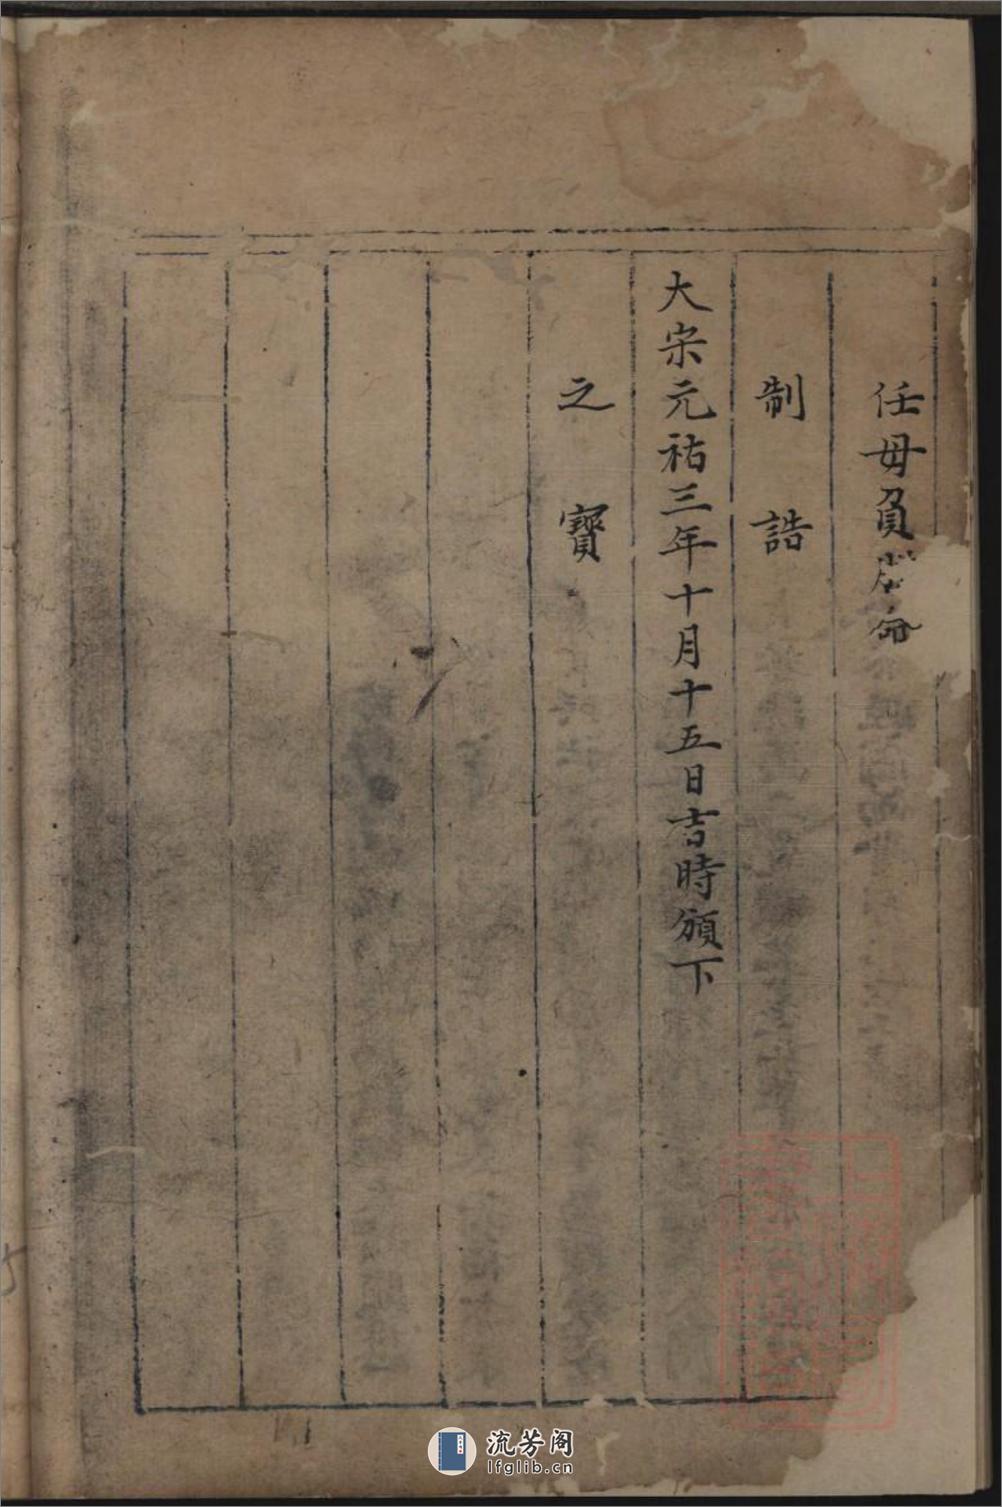 任毋負朕命
制誥
大宋元祐三年十月十五日吉時頒下
之寶
流芳阁
lfglib.cn